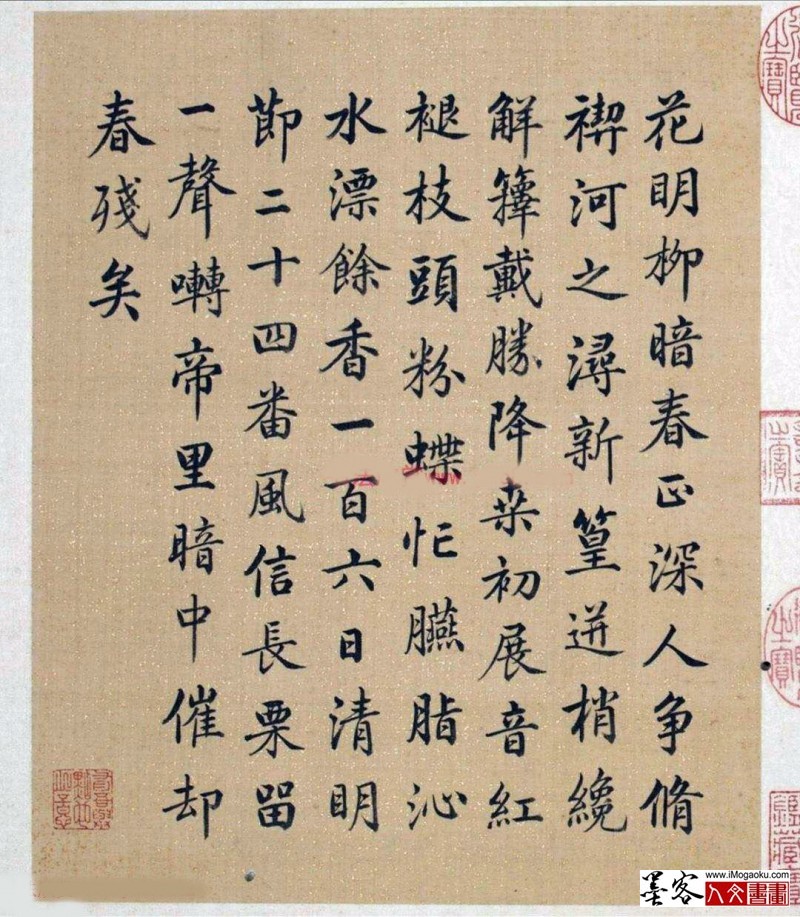 花明柳暗春正深人争脩
禊河之潯新篁迸梢纔
解籜戴勝降桒初展音紅
褪枝頭粉蝶忙臙脂沁
水漂餘香一百六日清明
莭二十四番風信長栗留
一聲囀帝里暗中催却
春殘矣
www.iMogaoku.com
墨客人文書畫